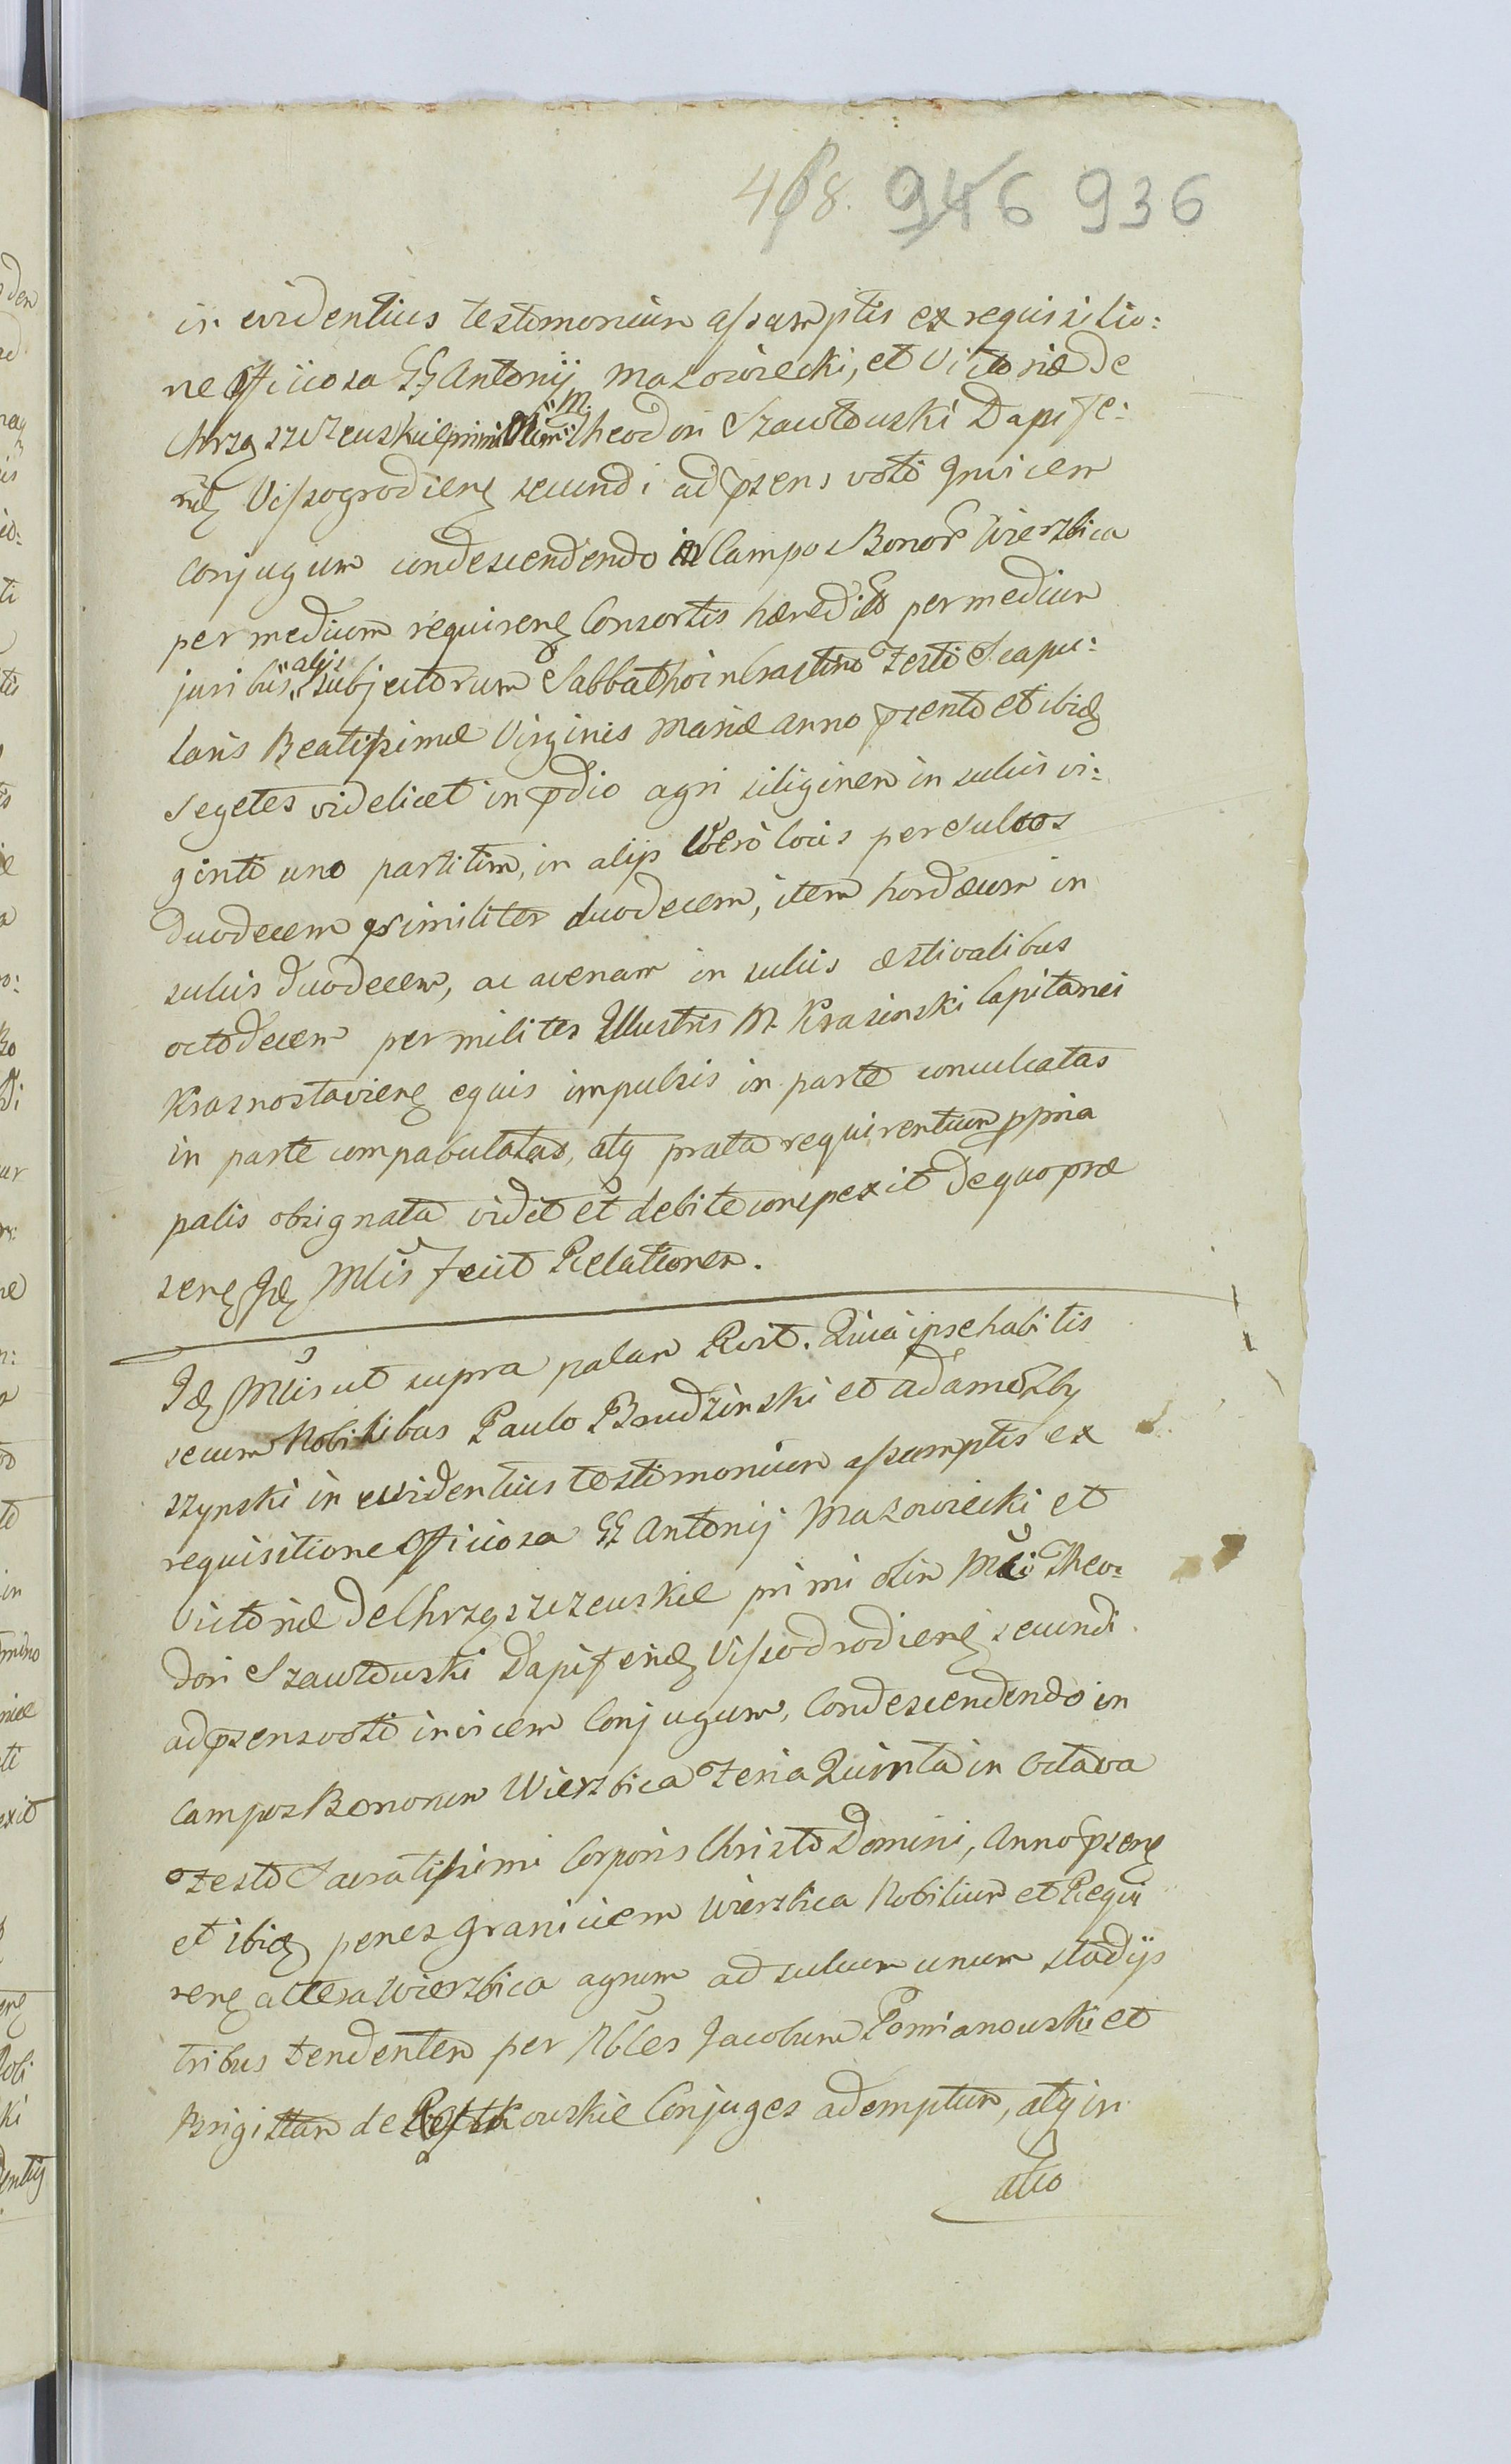 468. 946 936
in evidentius testimonium assumptis ex requisitio:
ne officiosa GG Antonij Mazowiecki, et Victoriæ de
Chrząszczewskie primi Olim M. Theodori Szawłouski Dapife:
ridę Vissogrodienę secundi ad psens voti Invicem
conjugum condescendendo in Campos Bonor Wierzbica
per medium requirenę Consortis hæredit per medium
juribus alijs subjectorum Sabbatho in Crastino Festi Scapu:
laris Beatissimæ Virginis Mariæ anno psenti et ibidę
segetes videlicet in pdio agri siliginem in sulcis vi:
ginti uno partitim, in alijs vero locis per sulcos
duodecem similiter duodecem, item hordeum in
sulcis duodecem, ac avenam in sulcis æstivalibus
octodecem per milites Illustris M. Krasinski Capitanei
Krasnostavienę equis impulsis in parte conculcatas
in parte compabulatas, atq prata requirentium ppria
palis obsignata vidit et debite conspexit de quo præ
senę Idę Mlis fecit Relationem.
Idę Mlis ut supra palam Rcit. Quia ipse habitis
secum Nobilibus Paulo Brudzinski et Adamo Zby
szynski in evidentius testimonium assumptis ex
requisitione officiosa GG Antonij Mazowiecki et
Victoriæ de Chrząszczewskie primi olim Mci Theo:
dori Szawłouski Dapiferidę Vissodrodienę secundi
ad psens voti invicem Conjugum, Condescendendo in
campos Bonorum Wierzbica Feria Quinta in Octava
Festi Sacratissimi Corporis Christi Domini, Anno psenę
et ibidę penes graniciem Wierzbica Nobilium et Requi
renę altera Wierzbica agrum ad sulcum unum stadijs
tribus tendentem per Nbles Jacobum Pomianouski et
Brigittam de Conjuges ademptum, atq in
alio